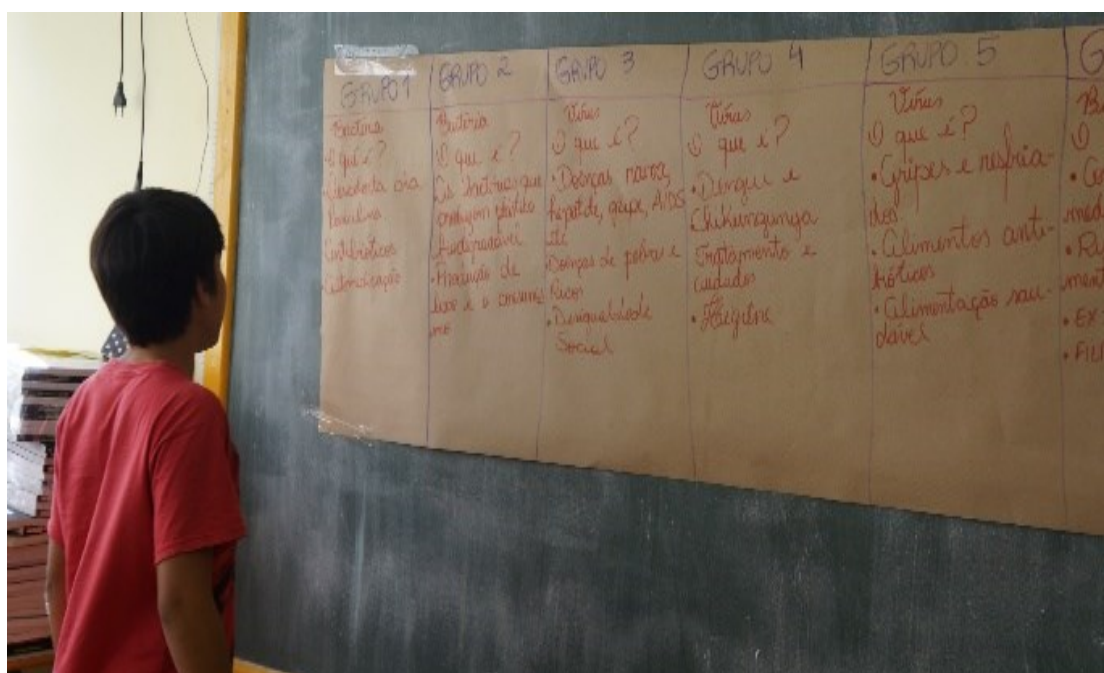 GRUPO 1
Bactéria
O que é?
Descoberta da
Penicilina
Antibióticos
Automedicação
GRUPO 2
Bactéria
O que é?
As bactérias que
produzem plástico
biodegradável
• Produção de
lixo e o consumis
mo
GRUPO 3
Vírus
O que é?
• Doenças raras,
hepatite, gripe, AIDS
etc
Doenças de pobres e
Ricos
• Desigualdade
Social
GRUPO 4
Vírus
O que é?
• Dengue e
Chikungunya
Tratamento e
cuidados
• Higiene
GRUPO 5
Vírus
O que é?
• Gripes e resfria-
dos
• Alimentos anti-
bióticos
• Alimentação sau-
dável
G
B
O
• EX
• FIL